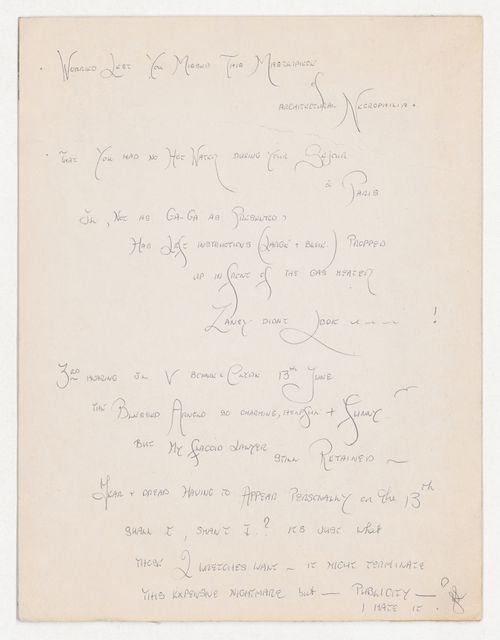 Worried Lest You Missed This Masterpiece
of
Architectural Necrophilia.
That You had no Hot Water during Your Sejour
à Paris
I'm, Not as Ga-Ga as Presented,
Had Left instructions (Large + Black) Propped
up in front of the gas heater
Zaney didnt Look ~ ~ ~ ~ !
3RD hearing in V 13th June
The Blessed Arnold so charming, + Funny
But My flaccid Lawyer
still Retained —
Fear + dread Having to Appear Personally on the 13th
Shall I, Shan't I? its just what
those 2 wretches want — it might terminate
this expensive nightmare but — Publicity —
I Hate it.